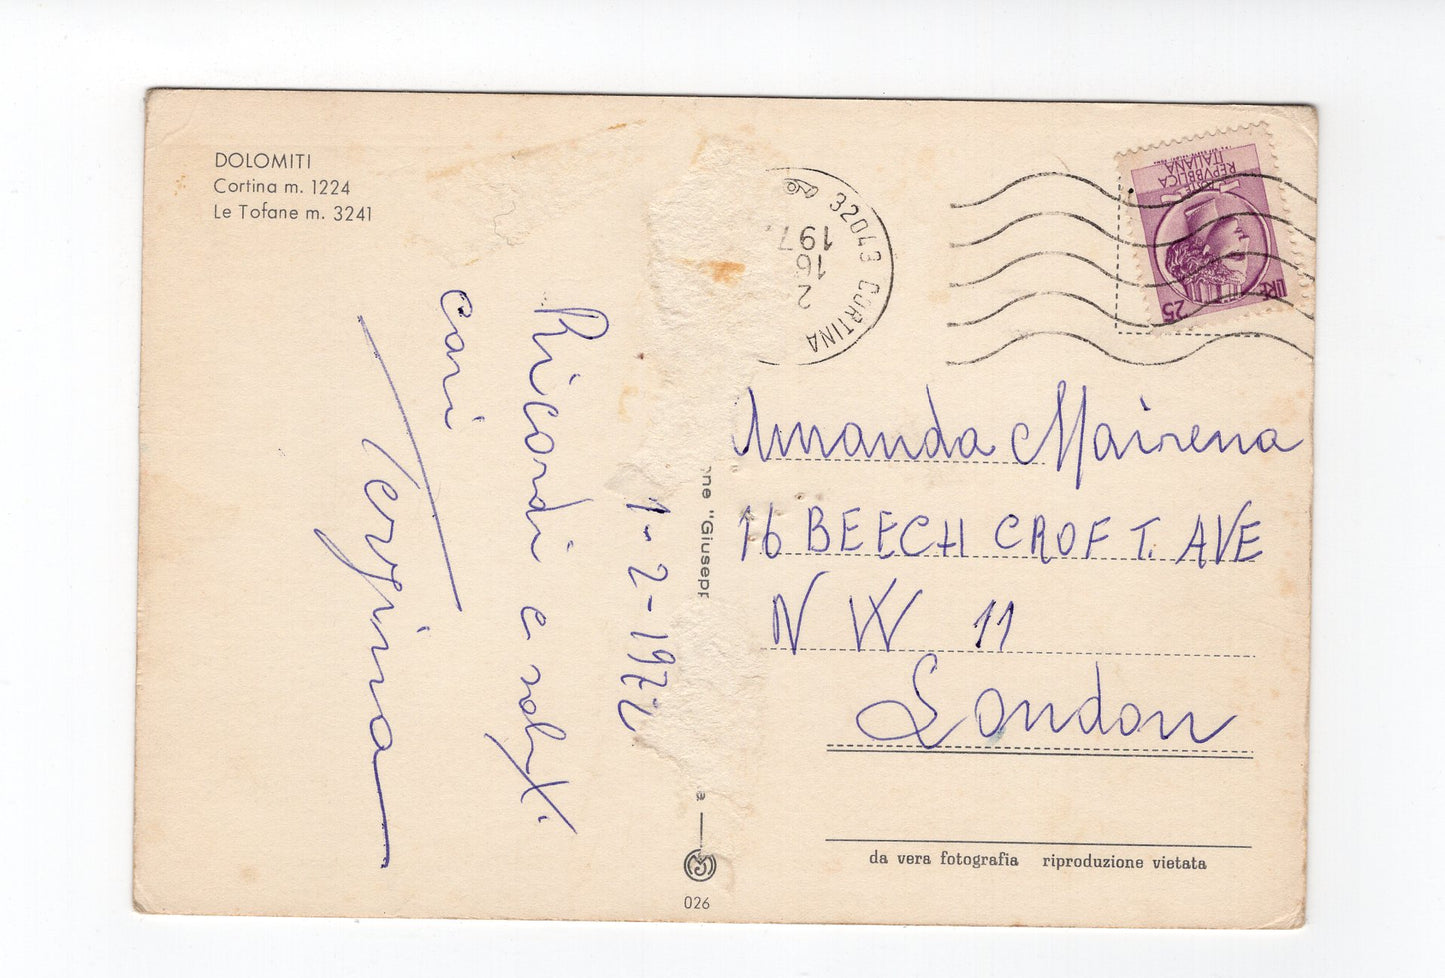 DOLOMITI
Cortina m. 1224
Le Tofane m. 3241
1-2-1972
Ricordi e saluti
cari
Terpina
32043 CORTINA
197
16
2
REPVBBLICA
ITALIANA
POSTE
LIRE 25
Amanda Mairena
16 BEECH CROFT. AVE
NW 11
London
da vera fotografia riproduzione vietata
026